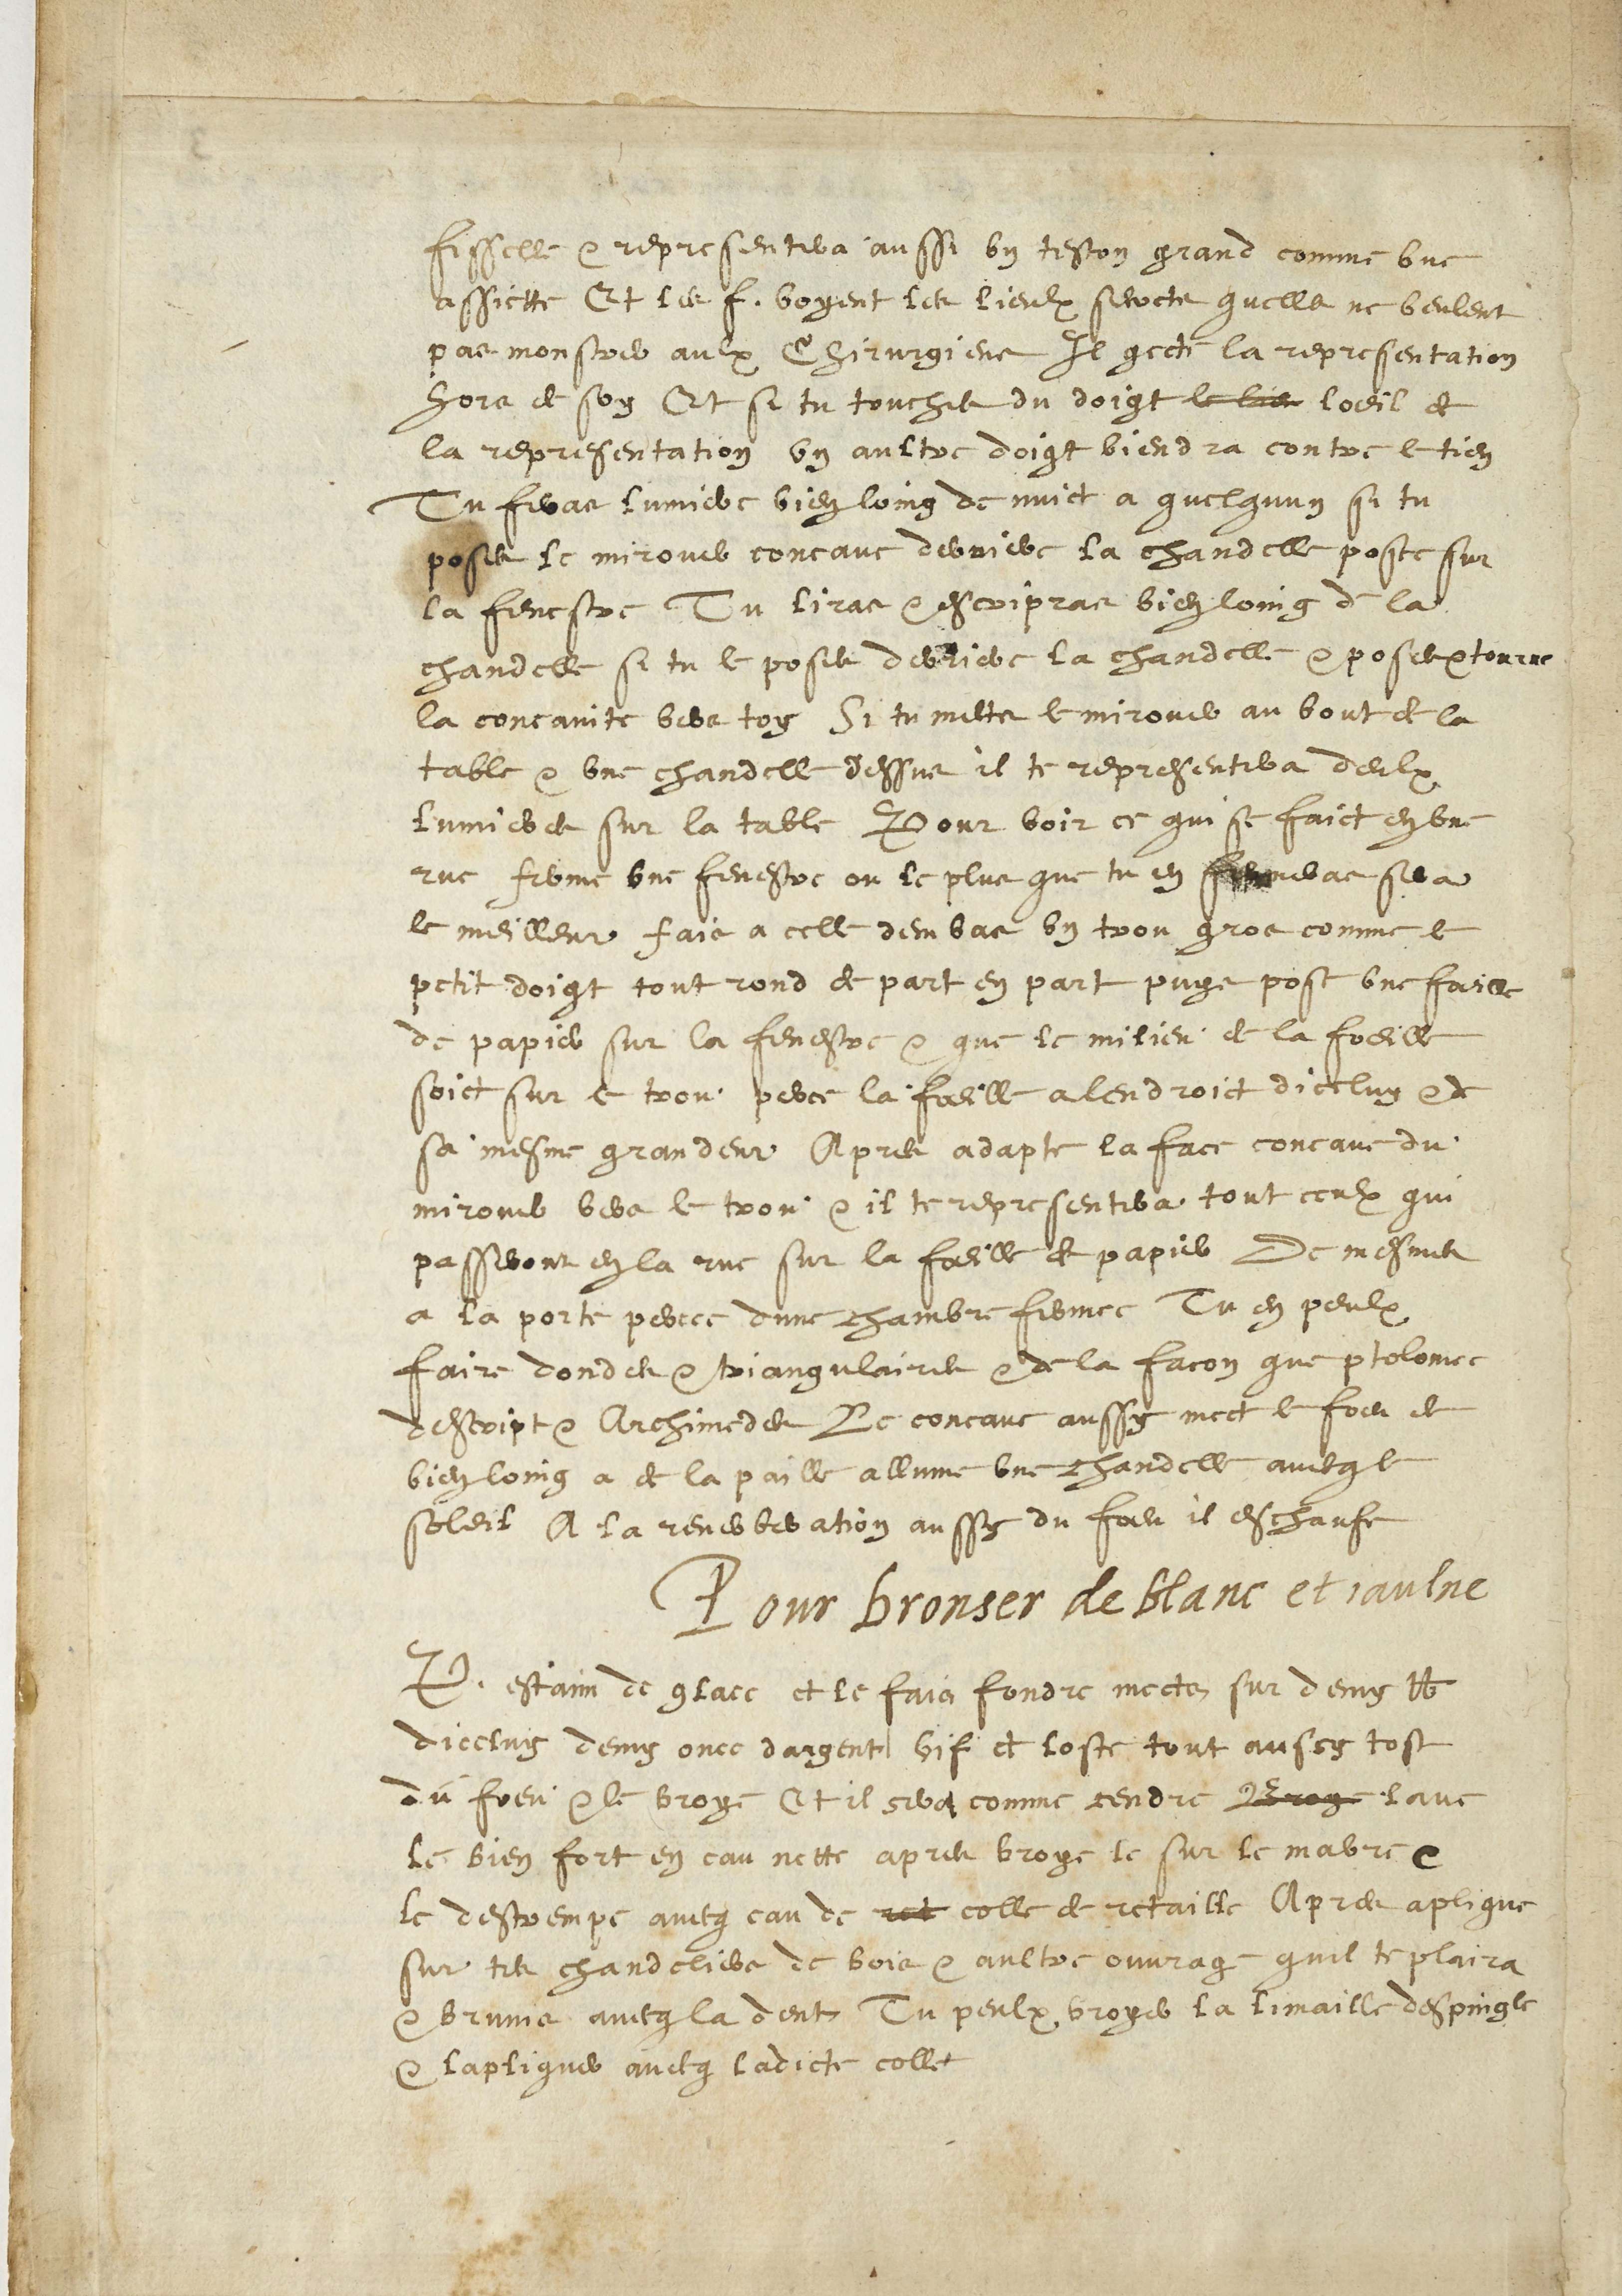 fisselle & representera aussi un teston grand comme une
assiette Et les f. voyent les lieulx secrets quelles ne veulent
pas monstrer aulx Chirurgiens Il gecte la representation
hors de soy Et si tu touches du doigt le bie loeil de
la representation un aultre doigt viendra contre le tien
Tu feras lumiere bien loing de nuict a quelquun si tu
poses le miroues concave derriere la chandelle posee sur
la fenestre Tu liras & escripras bien loing de la
chandelle si tu le poses derriere la chandelle & poses & tourne
la concavite vers toy Si tu metts le mirouer au bout de la
table & une chandelle dessus il te representera deulx
lumieres sur la table Pour voir ce qui se faict en une
rue ferme une fenestre ou le plus que tu en fermeras sera
le meilleur fais a celle dembas un trou gros comme le
petit doigt tout rond de part en part puys pose une foeille
de papier sur la fenestre & que le milieu de la foeille
soict sur le trou perce la foeille alendroict dicelluy & de
sa mesme grandeur Apres adapte la face concave du
mirouer vers le trou & il te representera tout ceulx qui
passeront en la rue sur la foeille de papier De mesmes
a la porte percee dune chambre fermee Tu en peulx
faire dondes & triangulaires & de la facon que ptolomee
descript & Archimedes Le concave aussy mect le foeu de
bien loing a de la paille allume une chandelle avecq le
soleil A la reverberation aussy du foeu il eschaufe
Pour bronser de blanc et iaulne
P. estaim de glace et le fais fondre mects sur demy ℔
dicelluy demy once dargent vif et loste tout aussy tost
du foeu & le broye Et il sera comme cendre Broye lave
le bien fort en eau nette apres broye le sur le mabre &
le destrempe avecq eau de ret colle de retaille Apres aplique
sur tes chandeliers de bois & aultre ouvrage quil te plaira
& brunis avecq la dent Tu peulx broyer la limaille despingle
& lapliquer avecq ladicte colle